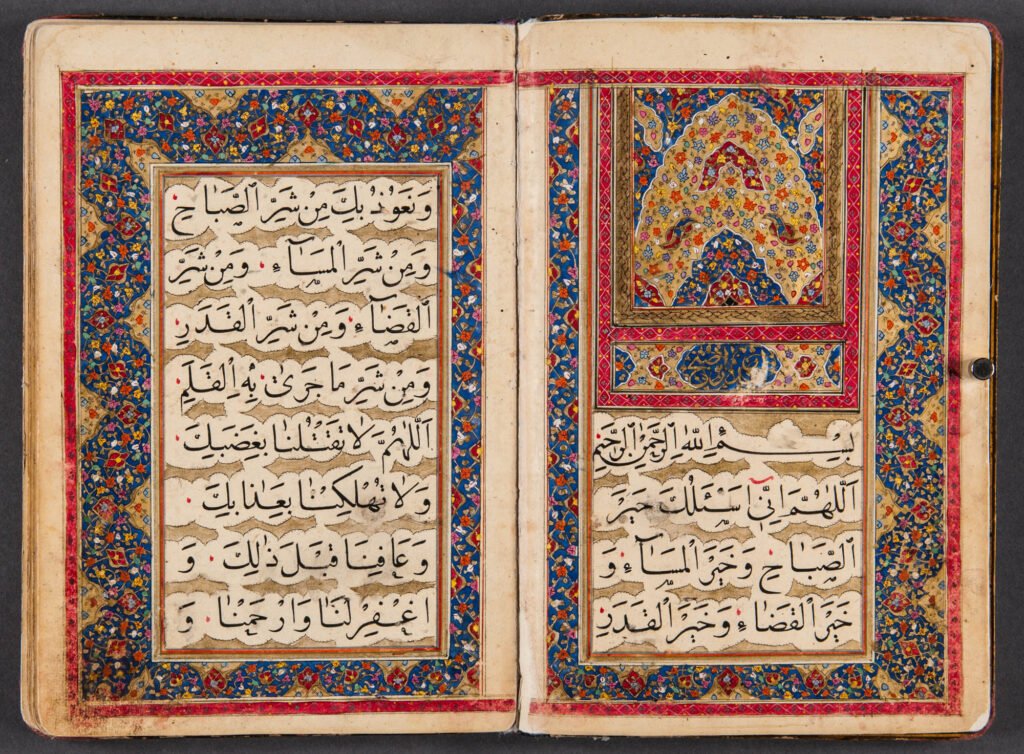 بِسْمِ اللهِ الرَّحْمٰنِ الرَّحِيمِ
اَللّٰهُمَّ اِنِّىٓ اَسْئَلُكَ خَيْرَ
الصَّبَاحِ وَخَيْرَ الْمَسَآءِ وَ
خَيْرَ الْقَضَآءِ وَخَيْرَ الْقَدَرِ
وَنَعُوذُ بِكَ مِنْ شَرِّ الصَّبَاحِ
وَمِنْ شَرِّ الْمَسَآءِ وَمِنْ شَرِّ
الْقَضَآءِ وَمِنْ شَرِّ الْقَدَرِ
وَمِنْ شَرِّ مَا جَرَىٰ بِهِ الْقَلَمِ
اَللّٰهُمَّ لَا تَقْتُلْنَا بِغَضَبِكَ
وَلَا تُهْلِكْنَا بِعَذَابِكَ
وَعَافِنَا قَبْلَ ذٰلِكَ وَ
اغْفِرْ لَنَا وَارْحَمْنَا وَ